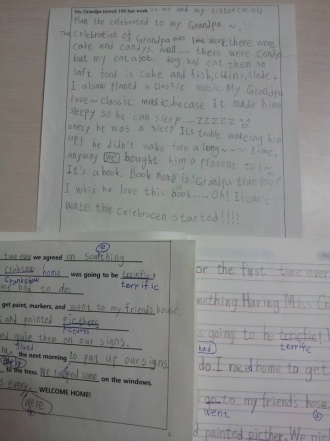 My Grandpa turned 100 last week. so me and my sister (Mimi)
Plan the celebrated to my Grandpa ~.
The Celebration of Grandpa was fun. Week, there were
cake and candys, well... there were candys
but my cat a job dog had eat them so
laft food is cake and fish, chikins, slade.
I alsow planed a classic music. My Grandpa
love ~ classic music because It made him
sleepy so he can sleep.... zzzzz
onecy he was a sleep It's trable wakeing him
up! he didn't wake fore a long ~~~ time,
anyway we bought him a plasent to! ~
It's a book. Book name is! "Grandpa than 100!"
I whis he love this book..... Oh! I can't
wate the Celebracen started!!!!
time ever we agreed on somthing
home was going to be terrific!
terrific
had to do.
get paint, markers, and went to my friends house,
and painted picthers
pictures
and gule them on our signs.
the next morning to put up our signs
to the trees. We some on the windows.
every WELCOME HOME!
were
or the first time ever
mething. Having Miss G
is going to be terrific!
had terrific
do. I raced home to get
go to my friends hose
went
painted picther. We